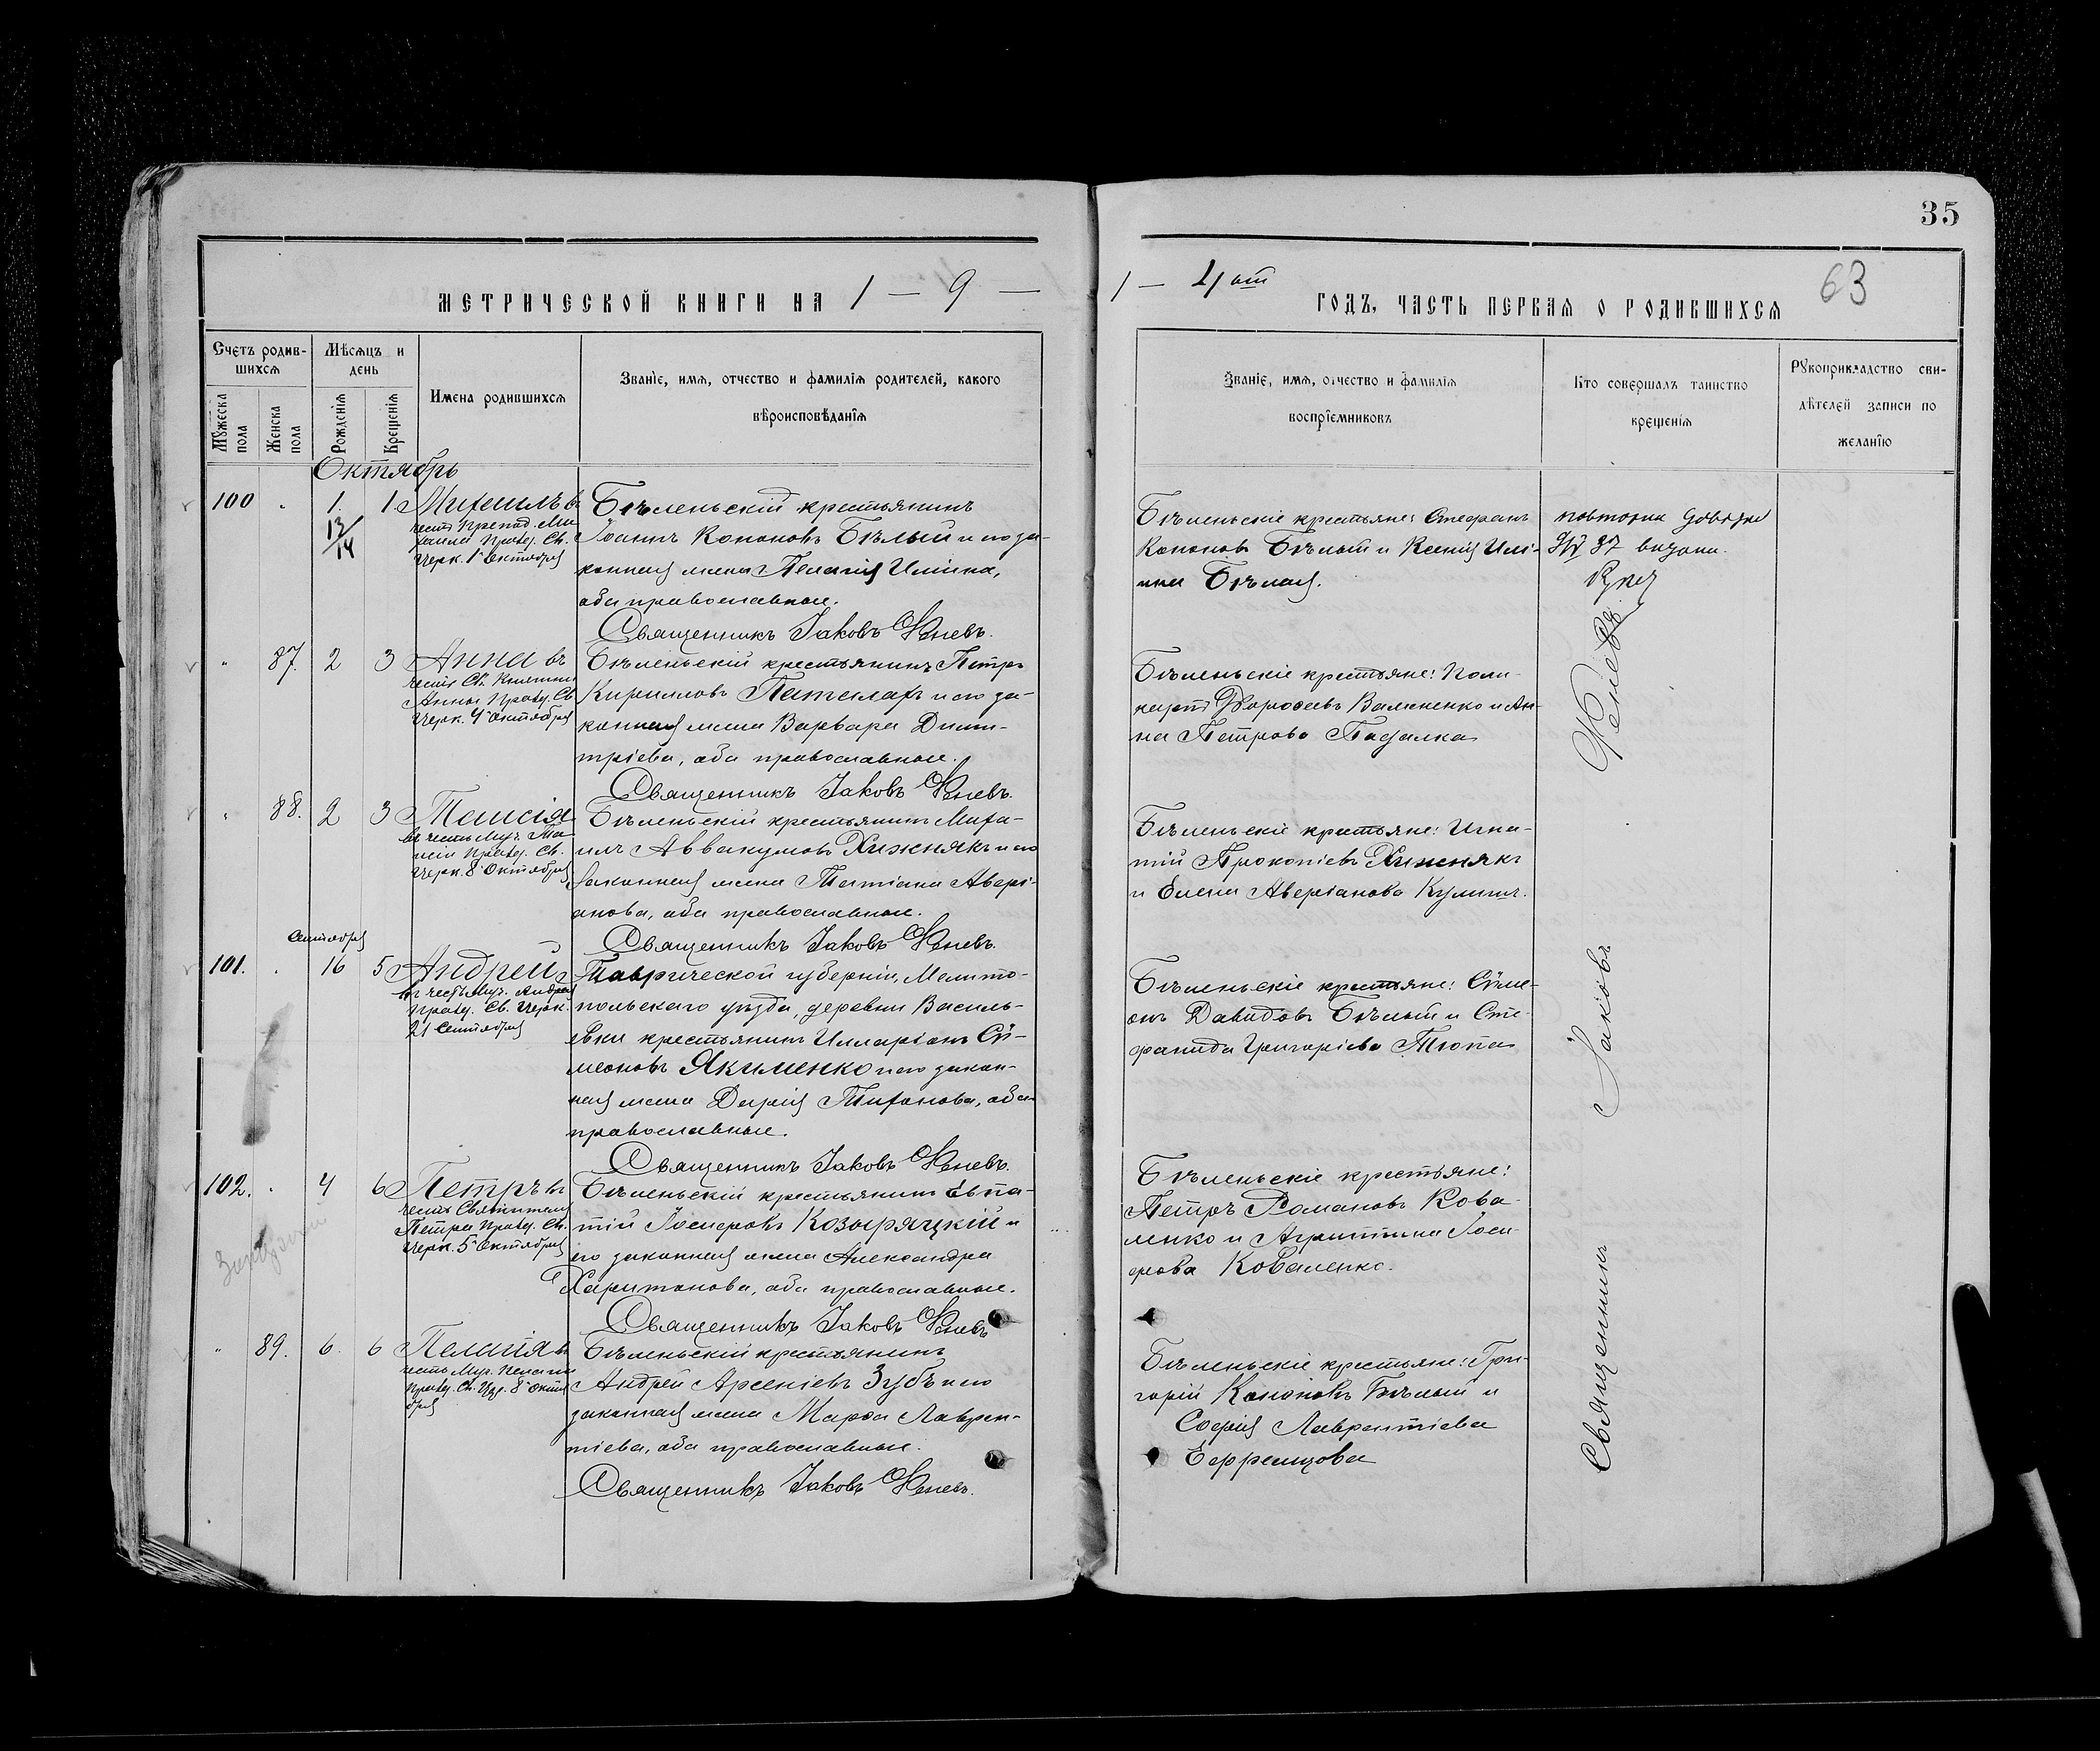 35
63
МЕТРИЧЕСКОЙ КНИГИ НА 1 — 9 —
1 — 4 ый ГОДЪ, ЧАСТЬ ПЕРВАЯ О РОДИВШИХСЯ
Счетъ родив-
шихся
Мужеска пола
Женска пола
Мѣсяцъ и
день
Рожденія
Крещенія
Имена родившихся
Званіе, имя, отчество и фамилія родителей, какого
вѣроисповѣданія
Званіе, имя, отчество и фамилія
воспріемниковъ
Кто совершалъ таинство
крещенія
Рукоприкладство сви-
дѣтелей записи по
желанію
Октябрь
100 " 1. 1.
13/14
Михаилъ въ
честь Препод. Ми-
хаила празд. Св.
Церк. 1 Октября
Бѣленьскій крестьянинъ
Іоаннъ Кононовъ Бѣлый и его за-
конная жена Пелагія Ильина,
оба православные.
Священникъ Іаковъ
Бѣленьскіе крестьяне: Стефанъ
Кононовъ Бѣлый и Ксенія Ильи-
на Бѣлая.
37 видана
" 87. 2 3
Анна въ
честь Св. Княгини
Анны празд. Св.
Церк. 4 Октября
Бѣленьскій крестьянинъ Петръ
Кирилловъ Пательахъ и его за-
конная жена Варвара Дими-
тріева, оба православные.
Священникъ Іаковъ
Бѣленьскіе крестьяне: Поли-
карпъ Дорофеевъ Василенко и Ан-
на Петрова Падалка
" 88. 2 3
Таисія
въ честь Муч. Таи-
сіи празд. Св.
Церк. 8 Октября
Бѣленьскій крестьянинъ Миха-
илъ Аввакумовъ Хижнякъ и его
законная жена Татіана Авері-
анова, оба православные.
Священникъ Іаковъ
Бѣленьскіе крестьяне: Игна-
тій Прокопіевъ Хижнякъ
и Елена Аверіанова Кулишъ.
Сентября
101. " 16 5
Андрей
въ честь Муч. Андрея
празд. Св. Церк.
21 Сентября
Таврической губерніи, Мелито-
польскаго уѣзда, деревни Василь-
евки крестьянинъ Илларіонъ Си-
меоновъ Якименко и его закон-
ная жена Дарія Тихонова, оба
православные.
Священникъ Іаковъ
Бѣленьскіе крестьяне: Симе-
онъ Давидовъ Бѣлый и Сте-
фанида Григоріева Тюпа
102. " 4 6
Петръ въ
честь Святителя
Петра празд. Св.
Церк. 5 Октября
Бѣленьскій крестьянинъ Евпа-
тій Іосифовъ Козыряцкій и
его законная жена Александра
Харитонова, оба православные.
Священникъ Іаковъ
Бѣленьскіе крестьяне:
Петръ Романовъ Кова-
ленко и Агриппина Іоси-
фова Коваленко.
" 89. 6. 6
Пелагія въ
честь Муч. Пелагіи
празд. Св. Цер. 8 Октя-
бря
Бѣленьскій крестьянинъ
Андрей Арсеніевъ Зубъ и его
законная жена Марфа Лаврен-
тіева, оба православные.
Священникъ Іаковъ
Бѣленьскіе крестьяне: Гри-
горій Кононовъ Бѣлый и
Софія Лаврентіева
Священникъ Іаковъ